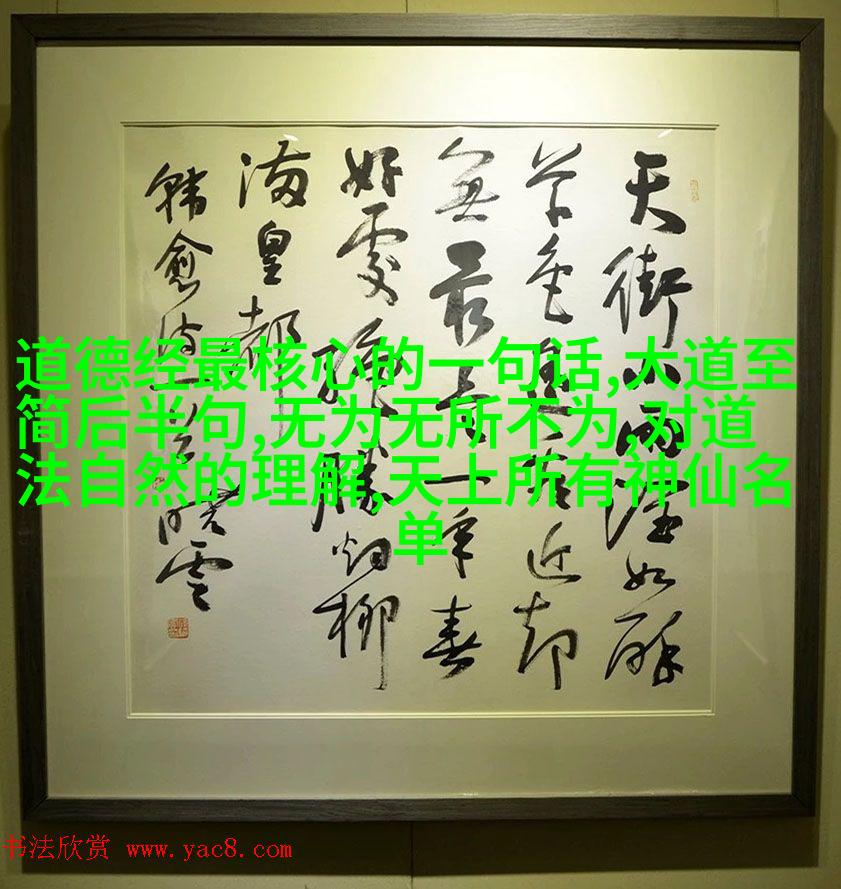 天街小雨潤如酥
草色遥看近却
無最是一年春
好處絶勝烟柳
满皇都
韓愈诗
道德经最核心的一句话,大道至
简后半句,无为无所不为,对道
法自然的理解,天上所有神仙名
单
书法欣赏 www.yac8.com